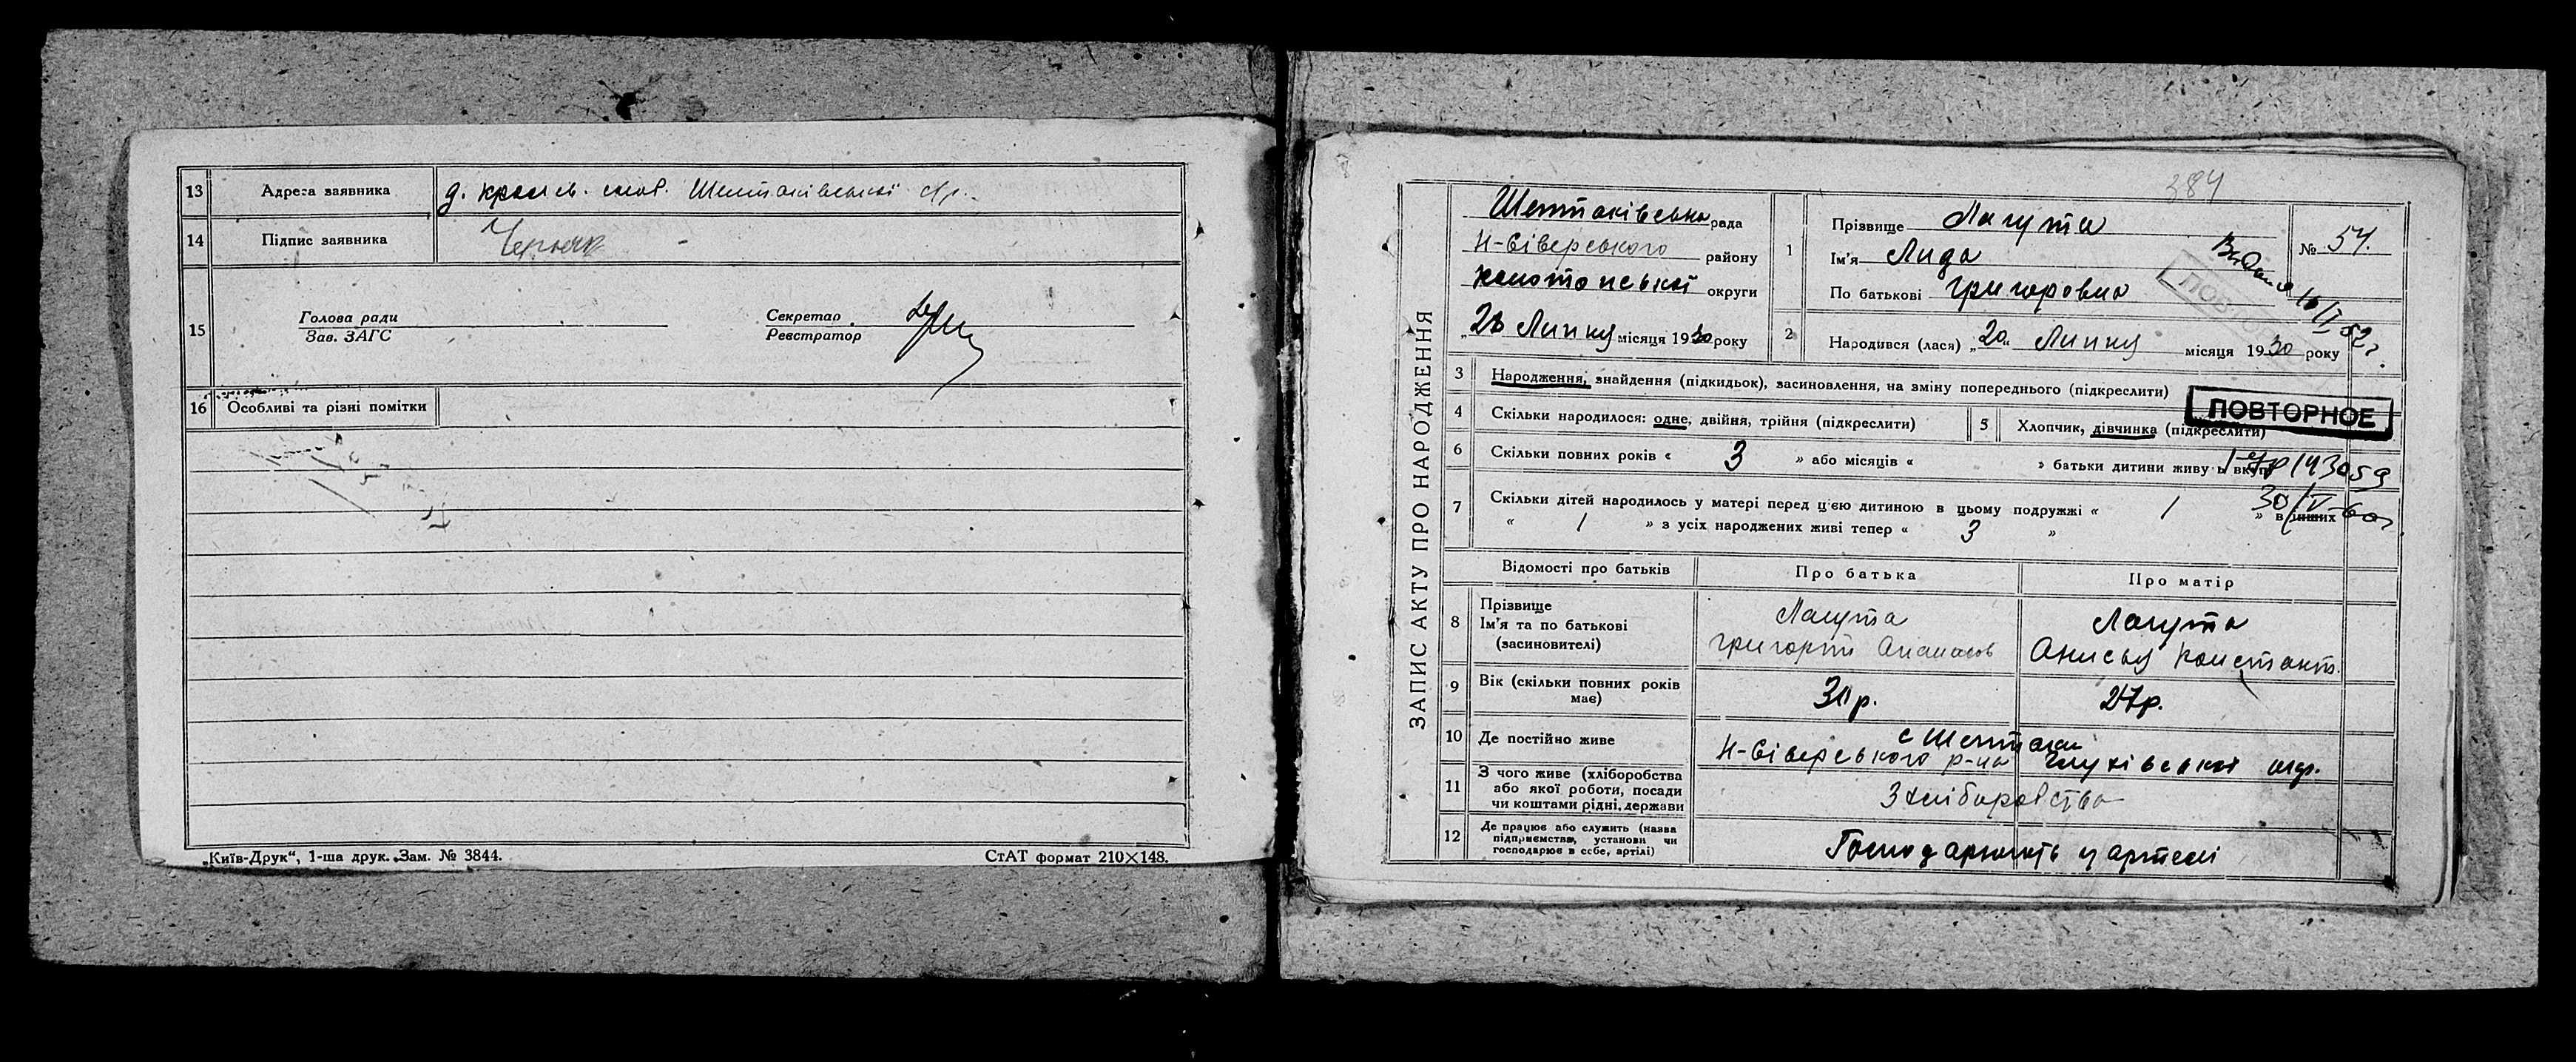 13 Адреса заявника Шептаківської
14 Підпис заявника Черняк
15 Голова ради
Зав. ЗАГС
Секретар
Реєстратор
16 Особливі та різні помітки
„Київ-Друк“, 1-ша друк. Зам. № 3844.
СтАТ формат 210×148.
384
ЗАПИС АКТУ ПРО НАРОДЖЕННЯ
Шептаківська рада
Н-Сіверського району
Конотопської округи
Липня місяця 1930 року
1 Прізвище Лагута
Ім'я Лида
По батькові Григоровна
№ 54.
Видано 16/I 52 г.
2 Народився (лася) „20“ Липня місяця 1930 року
3 Народження, знайдення (підкидьок), засиновлення, на зміну попереднього (підкреслити)
ПОВТОРНОЕ
4 Скільки народилося: одне, двійня, трійня (підкреслити)
5 Хлопчик, дівчинка (підкреслити)
6 Скільки повних років « 3 » або місяців « » батьки дитини живуть вкупі
143059
7 Скільки дітей народилось у матері перед цією дитиною в цьому подружжі « 1 » в інших
30/V-60г
« 1 » з усіх народжених живі тепер « 3 »
Відомості про батьків Про батька Про матір
8 Прізвище
Ім'я та по батькові
(засиновителі)
Лагута
Григорій Опанасов
Лагута
Анисья Констант.
9 Вік (скільки повних років
має)
27р.
10 Де постійно живе
с Шептаки
Н-Сіверського р-на Глухівської окр.
11 З чого живе (хліборобства
або якої роботи, посади
чи коштами рідні, держави
З хліборобства
12 Де працює або служить (назва
підприємства, установи чи
господарює в себе, артілі)
Господарюють у артелі